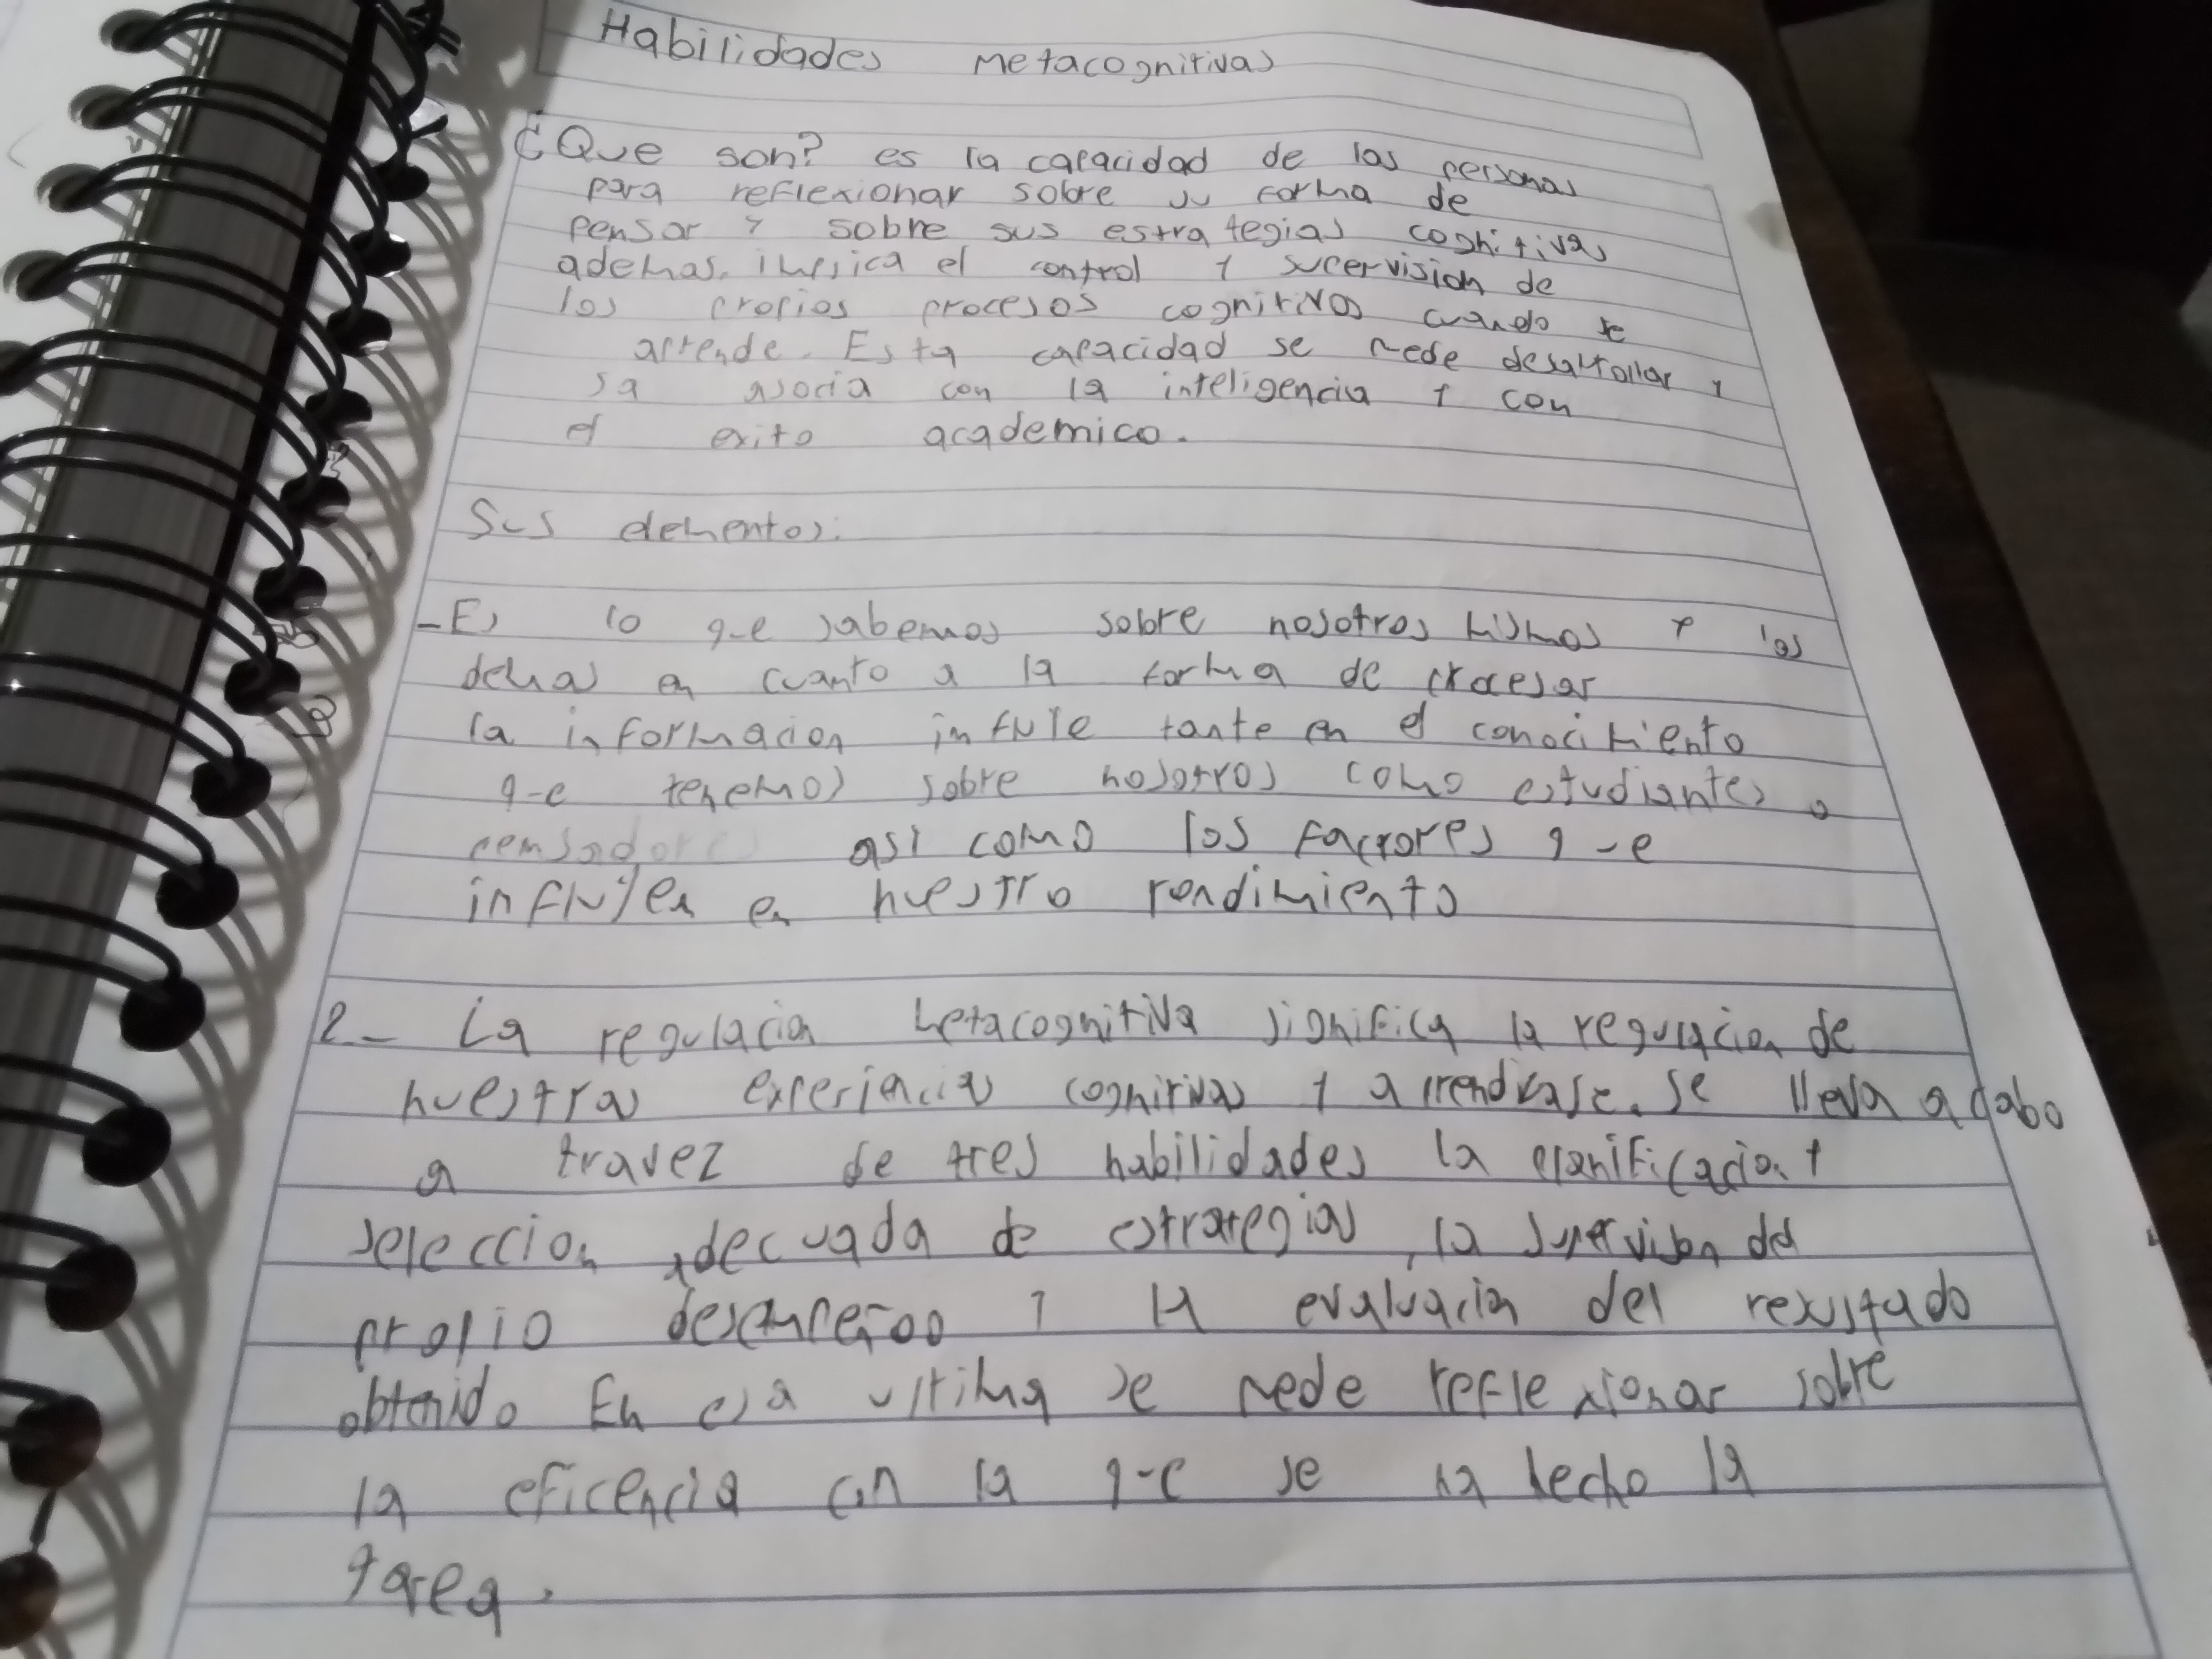 Habilidades Metacognitivas
¿Que son? es la capacidad de las personas
para reflexionar sobre su forma de
pensar y sobre sus estrategias cognitivas
ademas. implica el control y supervision de
los propios procesos cognitivos cuando se
aprende. Esta capacidad se puede desarrollar y
sa asocia con la inteligencia y con
el exito academico.
Sus elementos:
- Es lo que sabemos sobre nosotros mismos y los
demas en cuanto a la forma de procesar
la informacion influye tante en el conocimiento
que tenemos sobre nosotros como estudiantes o
pensadores asi como los factores que
influyen en nuestro rendimiento
2- La regulacion metacognitiva significa la regulacion de
nuestras experiencias cognitivas y aprendizase. se lleva a cabo
a travez de tres habilidades la planificacion y
seleccion adecuada de estrategias, la supervision del
propio desempeñoo y la evaluacion del resultado
obtenido En esa ultima se puede reflexionar sobre
la eficencia con la que se ha hecho la
tarea.